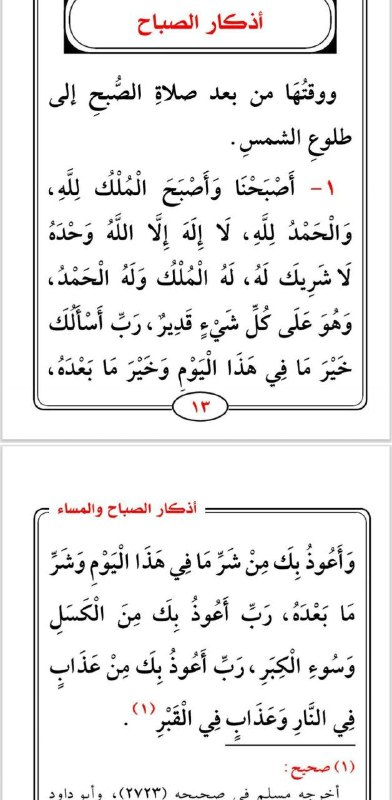 أذكار الصباح
ووقتُهَا من بعد صلاةِ الصُّبحِ إلى
طلوعِ الشمسِ.
١- أَصْبَحْنَا وَأَصْبَحَ الْمُلْكُ لِلَّهِ،
وَالْحَمْدُ لِلَّهِ، لَا إِلَهَ إِلَّا اللَّهُ وَحْدَهُ
لَا شَرِيكَ لَهُ، لَهُ الْمُلْكُ وَلَهُ الْحَمْدُ،
وَهُوَ عَلَى كُلِّ شَيْءٍ قَدِيرٌ، رَبِّ أَسْأَلُكَ
خَيْرَ مَا فِي هَذَا الْيَوْمِ وَخَيْرَ مَا بَعْدَهُ،
١٣
أذكار الصباح والمساء
وَأَعُوذُ بِكَ مِنْ شَرِّ مَا فِي هَذَا الْيَوْمِ وَشَرِّ
مَا بَعْدَهُ، رَبِّ أَعُوذُ بِكَ مِنَ الْكَسَلِ
وَسُوءِ الْكِبَرِ، رَبِّ أَعُوذُ بِكَ مِنْ عَذَابٍ
فِي النَّارِ وَعَذَابٍ فِي الْقَبْرِ(١).
(١) صحيح:
أخرجه مسلم في صحيحه (٢٧٢٣)، وأبو داود